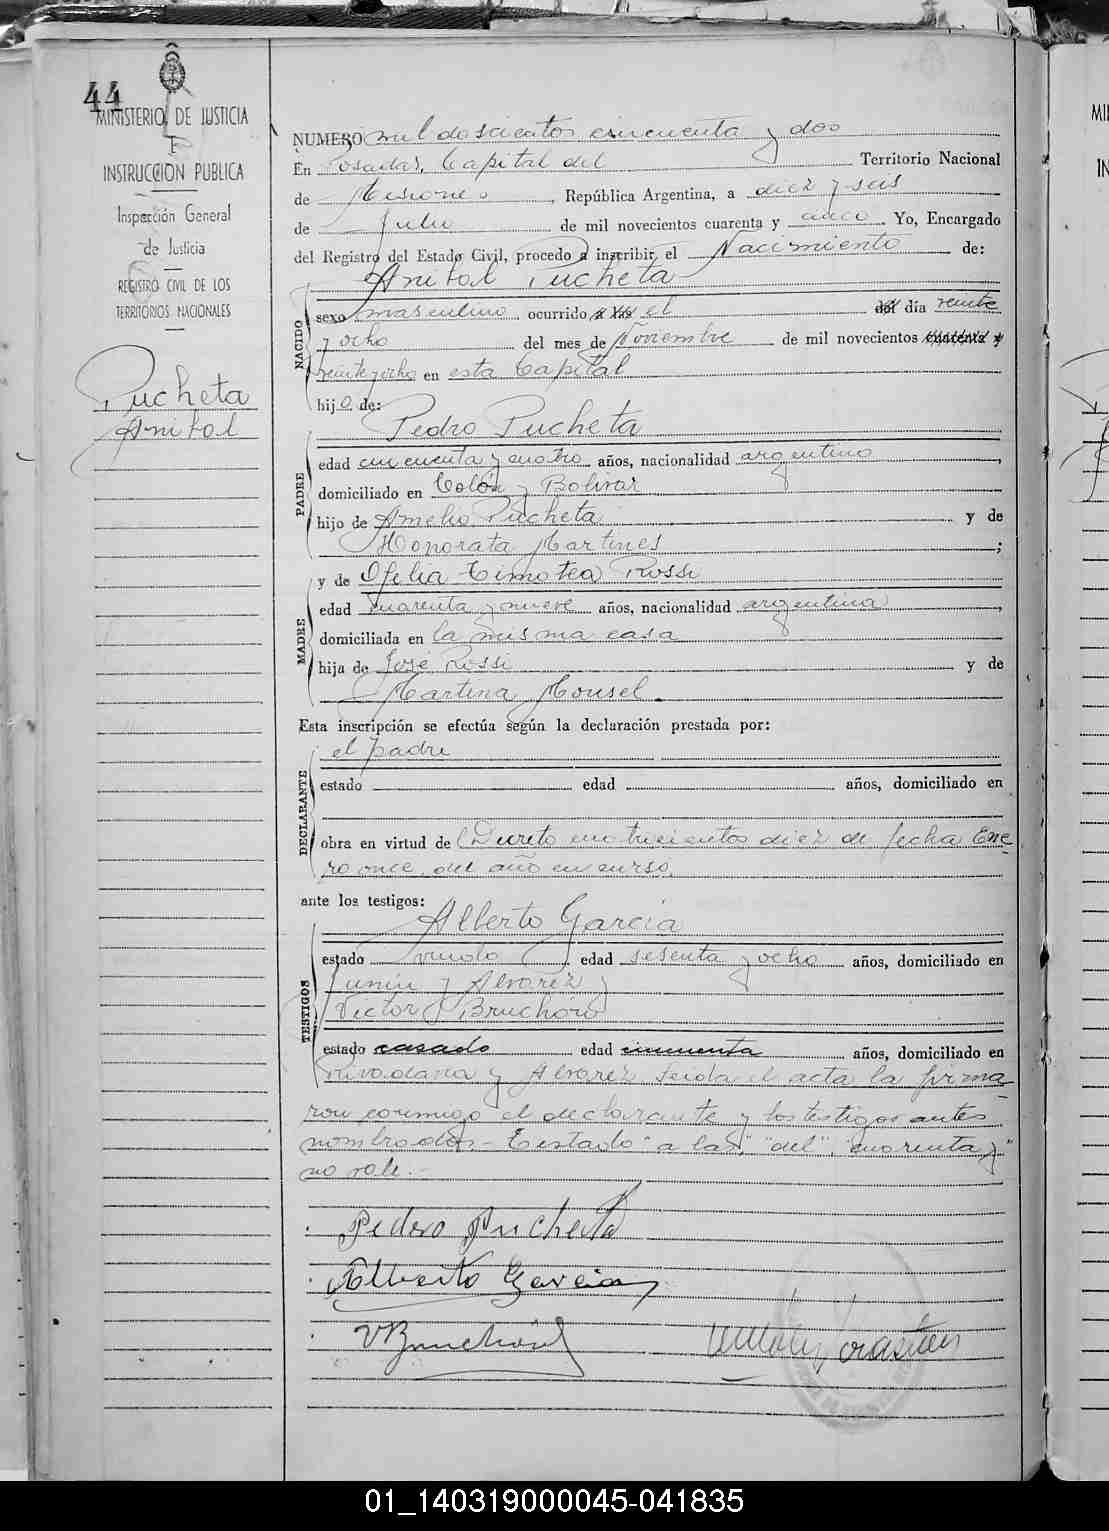 44
MINISTERIO DE JUSTICIA
E
INSTRUCCION PUBLICA
Inspección General
de Justicia
REGISTRO CIVIL DE LOS
TERRITORIOS NACIONALES
Pucheta
Anibal
NUMERO mil doscientos cincuenta y dos
En Posadas, Capital del Territorio Nacional
de Misiones, República Argentina, a diez y seis
de Julio de mil novecientos cuarenta y cinco. Yo, Encargado
del Registro del Estado Civil, procedo a inscribir el Nacimiento de:
Anibal Pucheta
NACIDO
sexo masculino ocurrido a las el del día veinte
y ocho del mes de Noviembre de mil novecientos cuarenta y
veinte y ocho en esta Capital
hijo de:
Pedro Pucheta
PADRE
edad cincuenta y cuatro años, nacionalidad argentino,
domiciliado en Colón y Bolivar
hijo de Amelio Pucheta y de
Honorata Martines;
y de Ofelia Timotea Rossi
MADRE
edad cuarenta y nueve años, nacionalidad argentina,
domiciliada en la misma casa
hija de José Rossi y de
Martina Mousel.
Esta inscripción se efectúa según la declaración prestada por:
el padre
DECLARANTE
estado edad años, domiciliado en
obra en virtud de Decreto cuatrocientos diez de fecha Ene-
ro once del año en curso.
ante los testigos:
Alberto García
TESTIGOS
estado viudo edad sesenta y ocho años, domiciliado en
Junin y Alvarez y
Victor Bruchoro
estado casado edad cincuenta años, domiciliado en
Rivadavia y Alvarez leída el acta la firma-
ron conmigo el declarante y los testigos antes
nombrados.- Testado "a las", "del", "cuarenta y"
no vale.-
Pedro Pucheta
Alberto Garcia
01_140319000045-041835